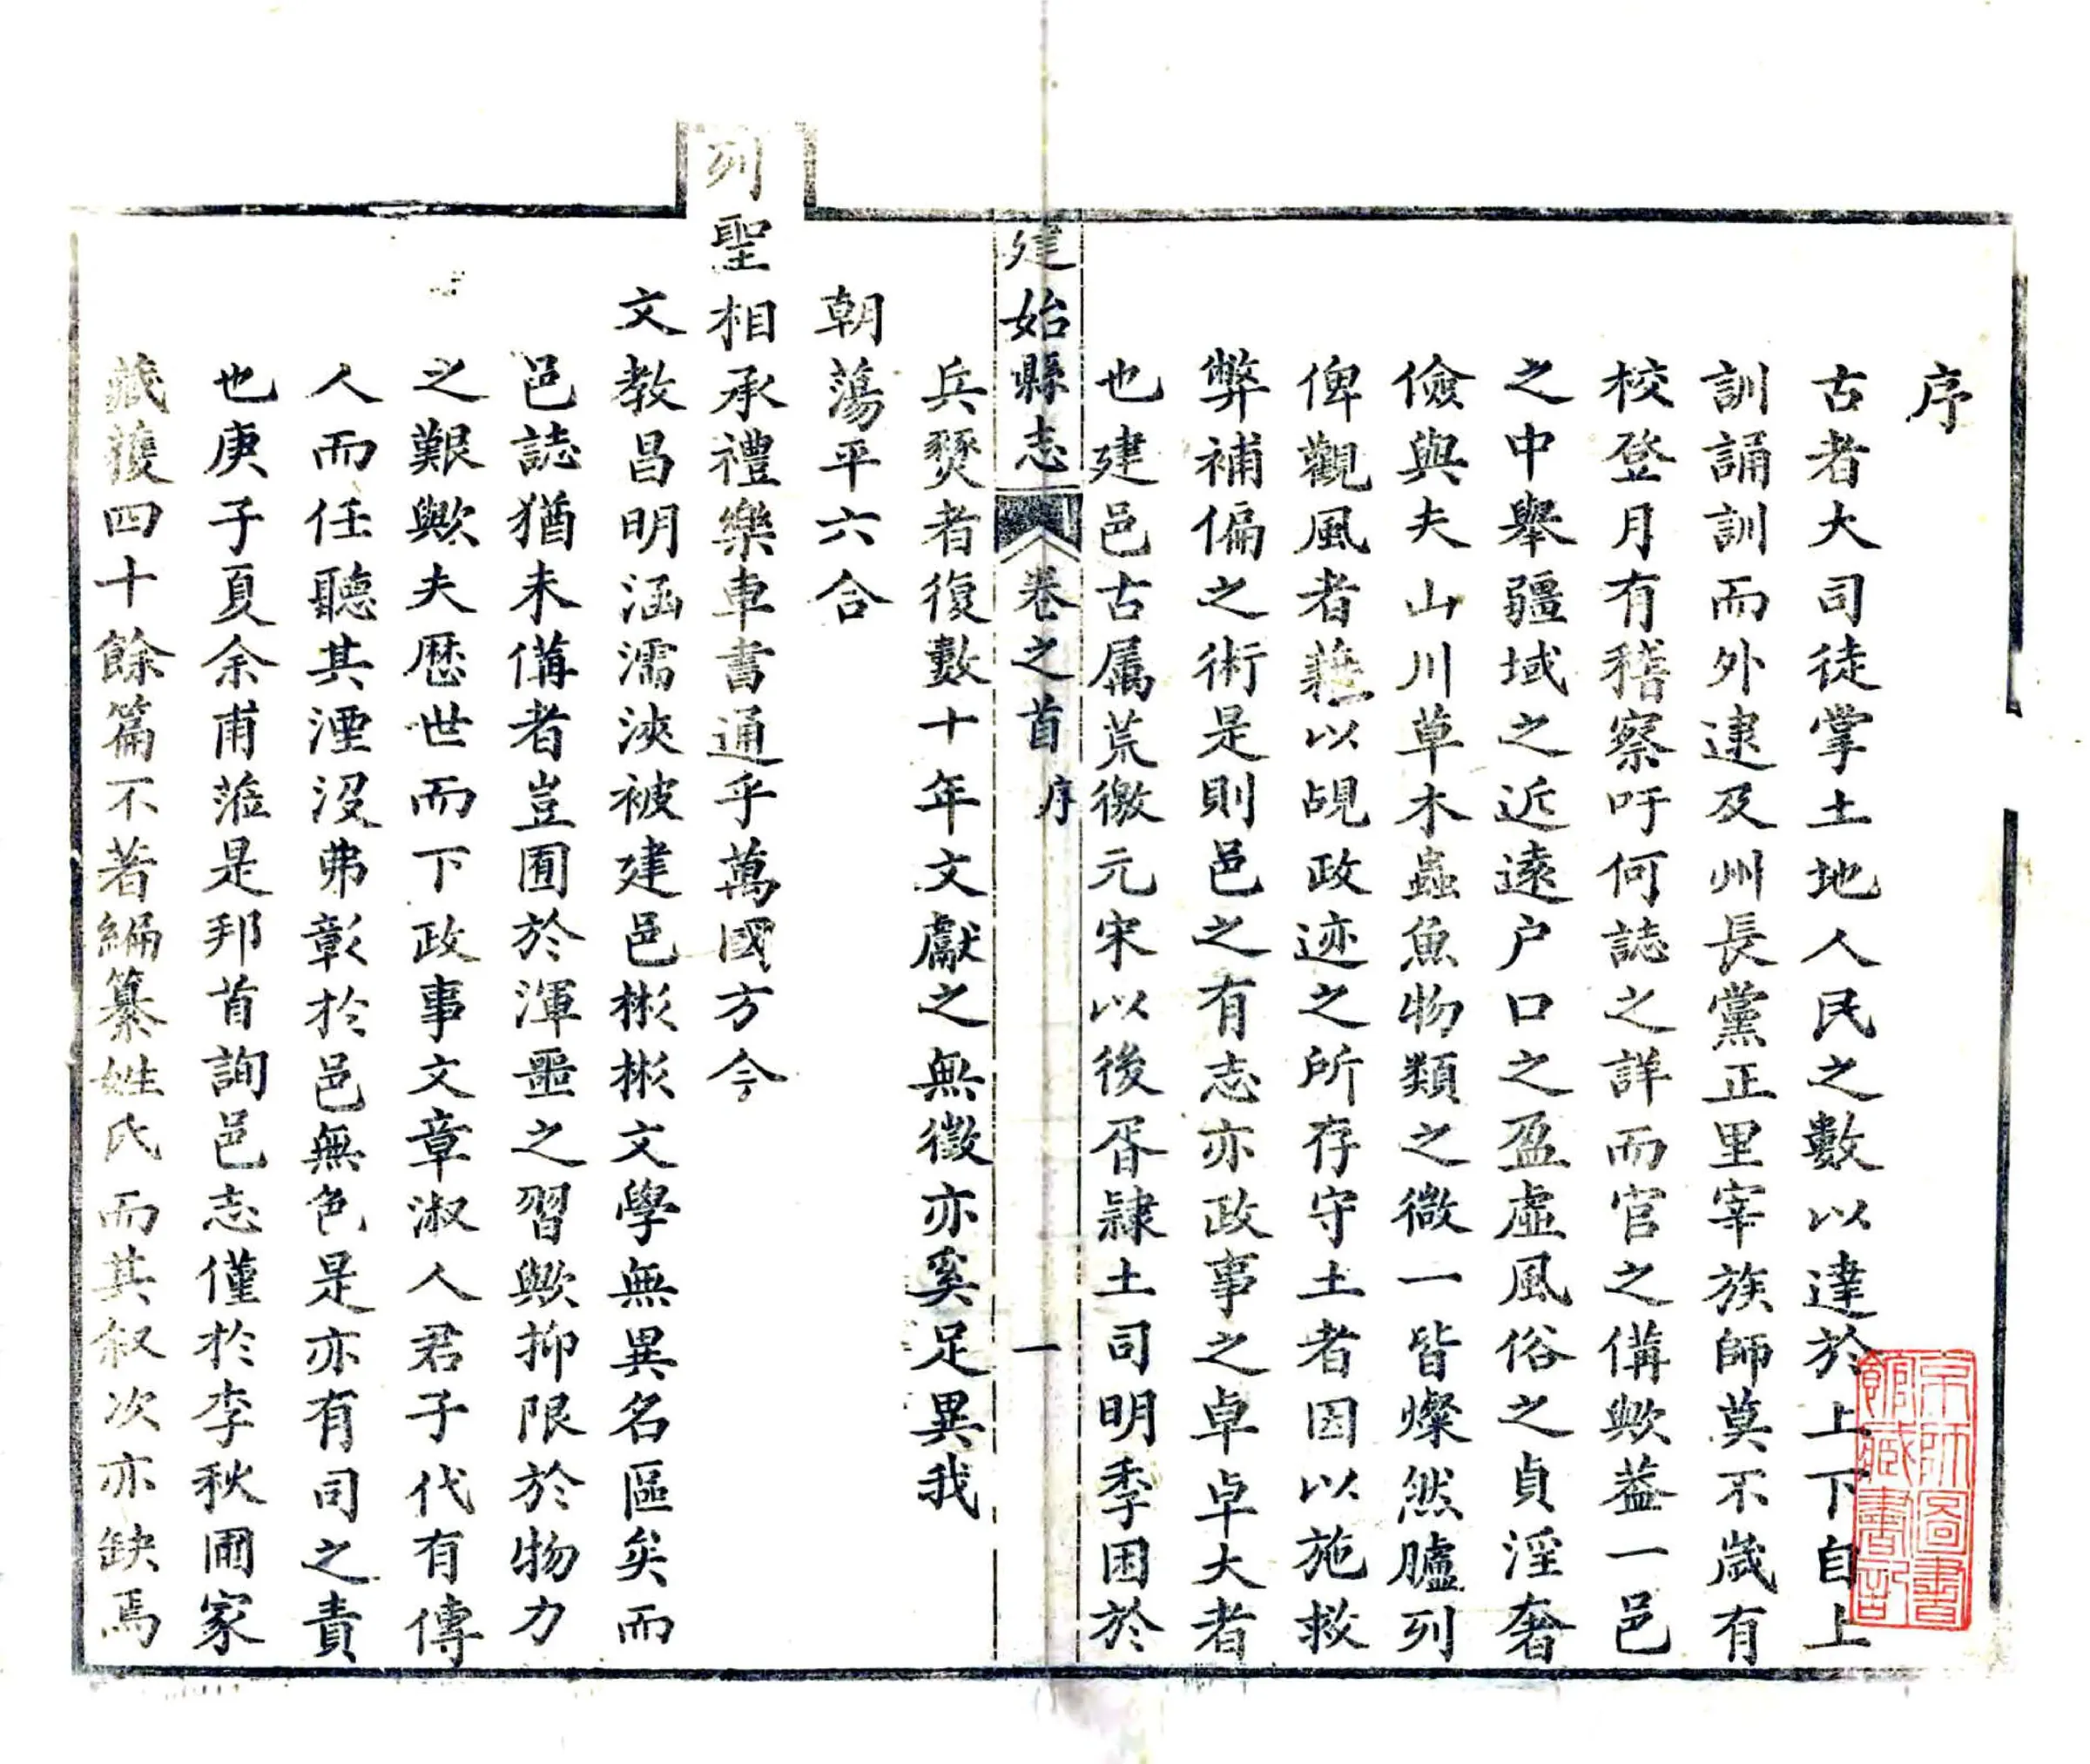 序
古者大司徒掌土地人民之數以達於上下自上
訓誦訓而外逮及州長黨正里宰族師莫不歲有
校登月有稽察吁何誌之詳而官之備歟蓋一邑
之中舉疆域之近遠户口之盈虛風俗之貞淫奢
儉與夫山川草木蟲魚物類之微一皆燦然臚列
俾觀風者藉以覘政迹之所存守土者因以施救
弊補偏之術是則邑之有志亦政事之卓卓大者
也建邑古属荒徼元宋以後胥隷土司明季困於
建始縣志 卷之首 序 一
兵燹者復數十年文獻之無徵亦奚足異我
朝蕩平六合
列聖相承禮樂車書通乎萬國方今
文教昌明涵濡浹被建邑彬彬文學無異名區矣而
邑誌猶未備者豈囿於渾噩之習歟抑限於物力
之艱歟夫歴世而下政事文章淑人君子代有傳
人而任聽其湮沒弗彰於邑無色是亦有司之責
也庚子夏余甫蒞是邦首詢邑志僅於李秋圃家
藏獲四十餘篇不著編纂姓氏而其叙次亦缺焉
京師圖書
館藏書記